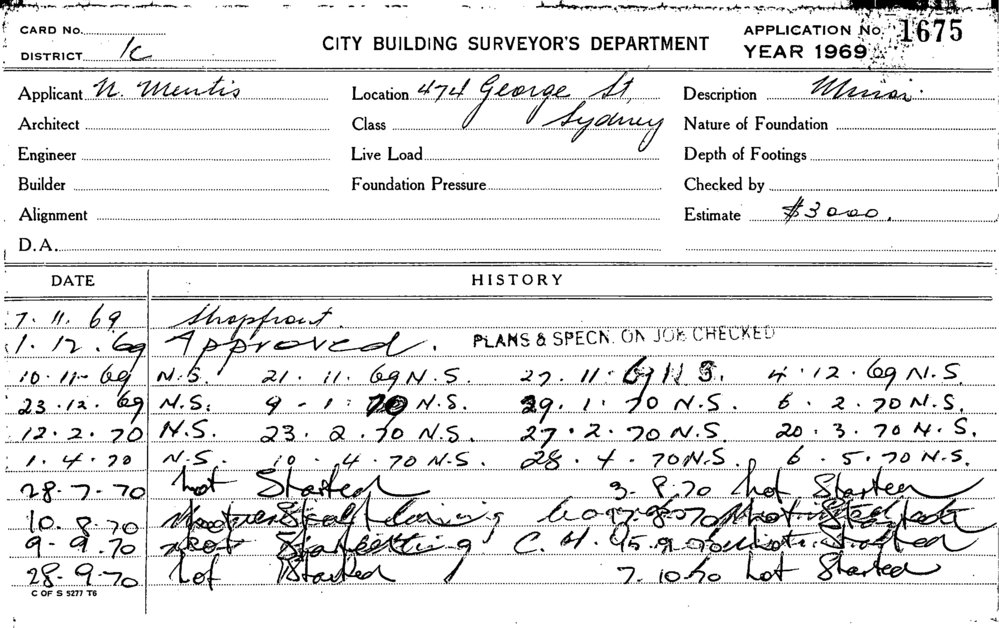 CARD No. APPLICATION No. 1675
CITY BUILDING SURVEYOR'S DEPARTMENT
DISTRICT 1C YEAR 1969
Applicant N. Mentis Location 474 George St, Description Minor
Architect Class Sydney Nature of Foundation
Engineer Live Load Depth of Footings
Builder Foundation Pressure Checked by
Alignment Estimate $3000.
D.A.
DATE HISTORY
7.11.69 Shopfront.
1.12.69 Approved. PLANS & SPECN. ON JOB CHECKED
10.11.69 N.S. 21.11.69 N.S. 27.11.69 N.S. 4.12.69 N.S.
23.12.69 N.S. 9-1.70 N.S. 29.1.70 N.S. 6.2.70 N.S.
12.2.70 N.S. 23.2.70 N.S. 27.2.70 N.S. 20.3.70 N.S.
1.4.70 N.S. 10.4.70 N.S. 28.4.70 N.S. 6.5.70 N.S.
28.7.70 not Started 3.8.70 not Started
10.8.70
9-9.70
28.9.70 not Started 7.10.70 not Started
C OF S 5277 T6